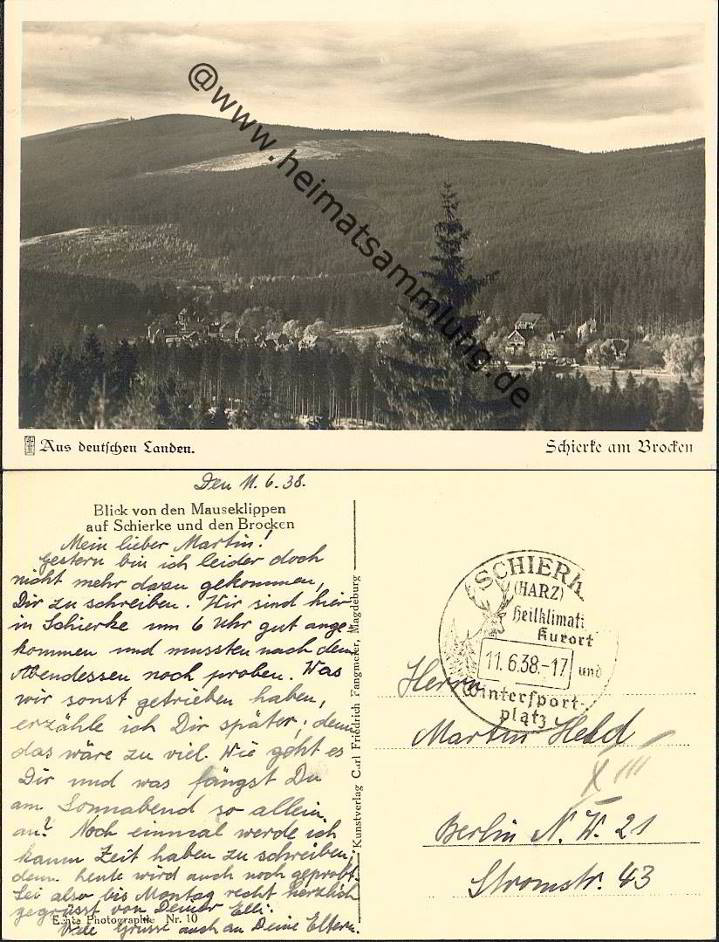 @www.heimatsammlung.de
Aus deutschen Landen.
Schierke am Brocken
Den 11.6.38.
Blick von den Mauseklippen
auf Schierke und den Brocken
Mein lieber Martin!
Gestern bin ich leider doch
nicht mehr dazu gekommen,
Dir zu schreiben. Wir sind hier
in Schierke um 6 Uhr gut ange-
kommen und mussten nach dem
Abendessen noch proben. Was
wir sonst getrieben haben,
erzähle ich Dir später, denn
das wäre zu viel. Wie geht es
Dir und was fängst Du
am Sonnabend so allein
an? Noch einmal werde ich
kaum Zeit haben zu schreiben,
denn heute wird auch noch geprobt.
Sei also bis Montag recht herzlich
gegrüsst von Deiner Elli.
Echte Photographie Nr. 10
Viele Grüsse auch an Deine Eltern.
Kunstverlag Carl Friedrich Fangmeier, Magdeburg
SCHIERK
(HARZ)
Heilklimati
Kurort
11.6.38.-17
und
Wintersport-
platz
Herrn
Martin Held
Berlin N.W. 21
Stromstr. 43